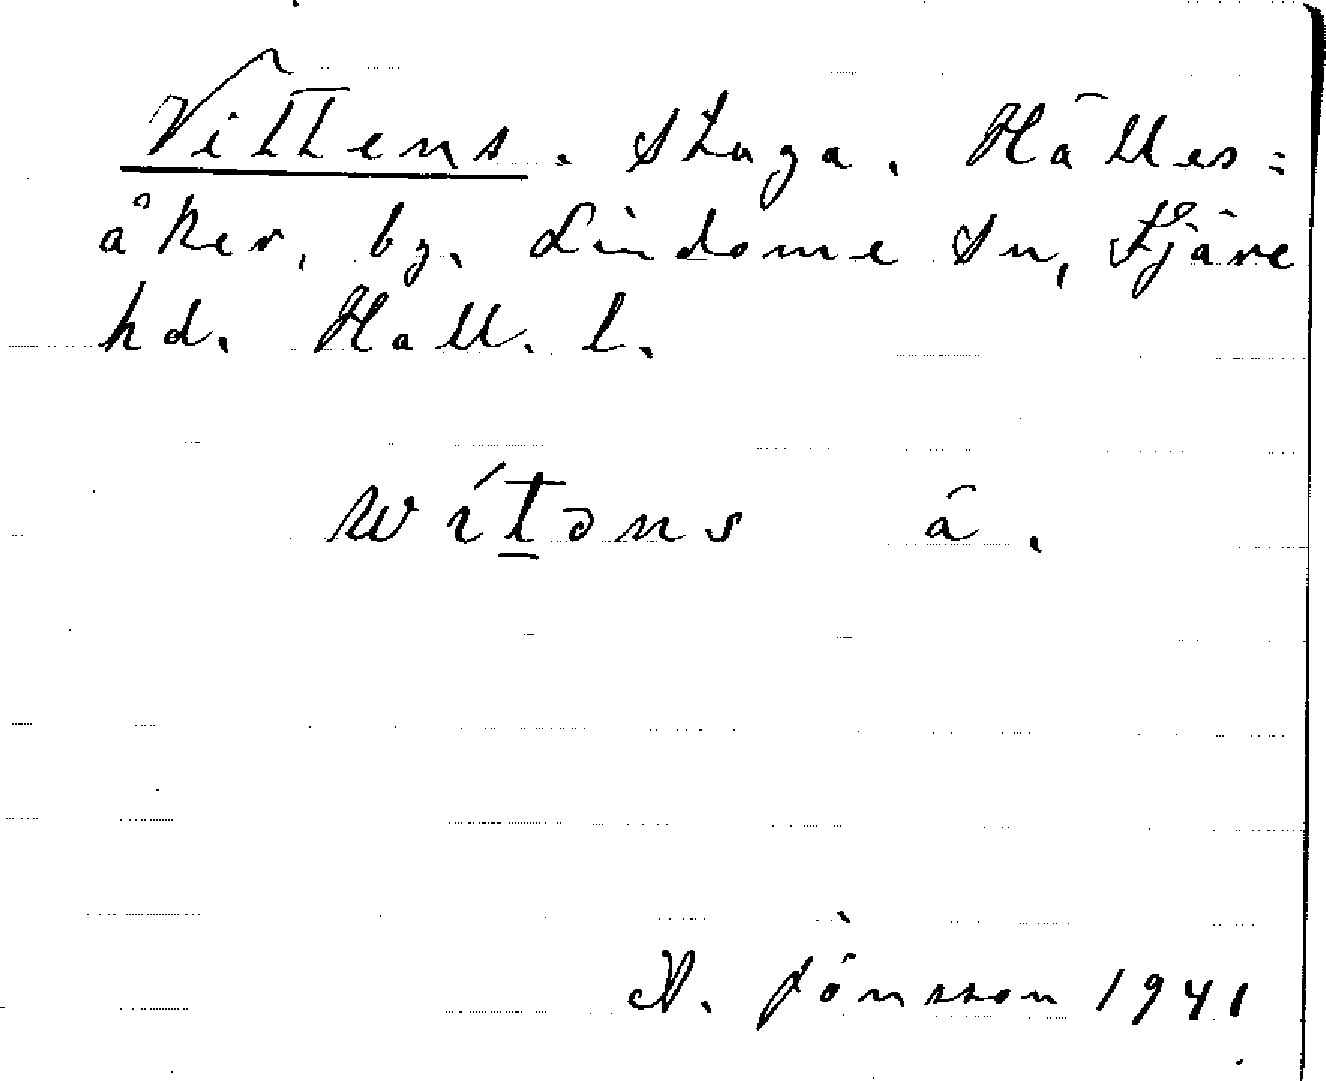 Vittens. stuga. Hälles=
åker, by. Lindome sn, Fjäre
hd. Hall. l.
wítəns ä.
A. Jönsson 1941